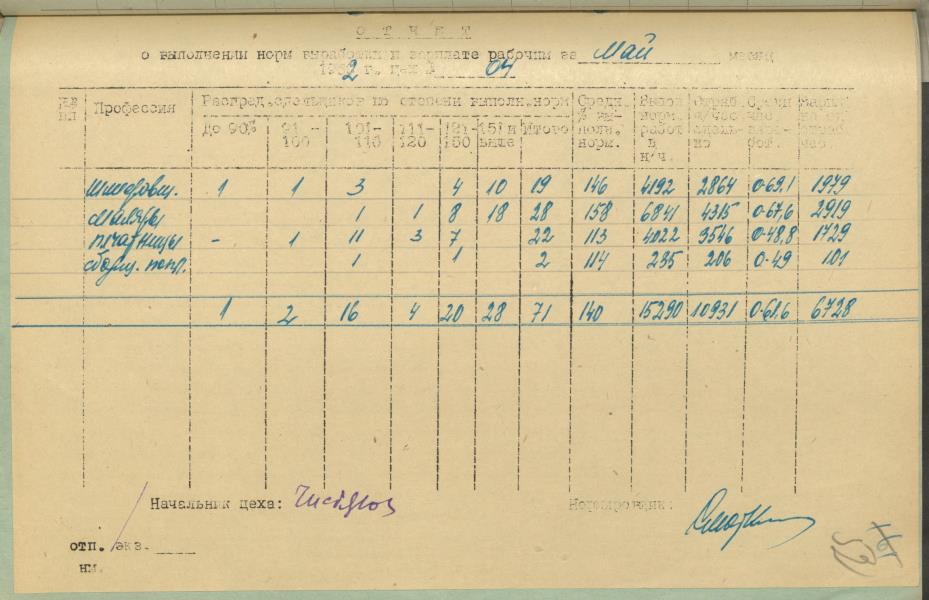 ОТЧЕТ
о выполнении норм выработки и зарплате рабочим за Май месяц
1952 г., цех № 04
Профессия Распред. сдельщиков по степени выполн. норм Средн. % выполн. норм. Выпол норм. работ в н/ч. Отраб. н/час сдельно
До 90% 91-100 101-110 111-120 121-150 151 и выше Итого
Шлифовщ. 1 1 3 4 10 19 146 4192 2864 0-69,1 1979
Маляры 1 1 8 18 28 158 6841 4315 0-67,6 2919
- 1 11 3 7 22 113 4022 3546 0-48,8 1729
1 1 2 114 235 206 0-49 101
1 2 16 4 20 28 71 140 15290 10931 0-61,6 6728
Начальник цеха: Нормировщик:
отп. экз.
нм.